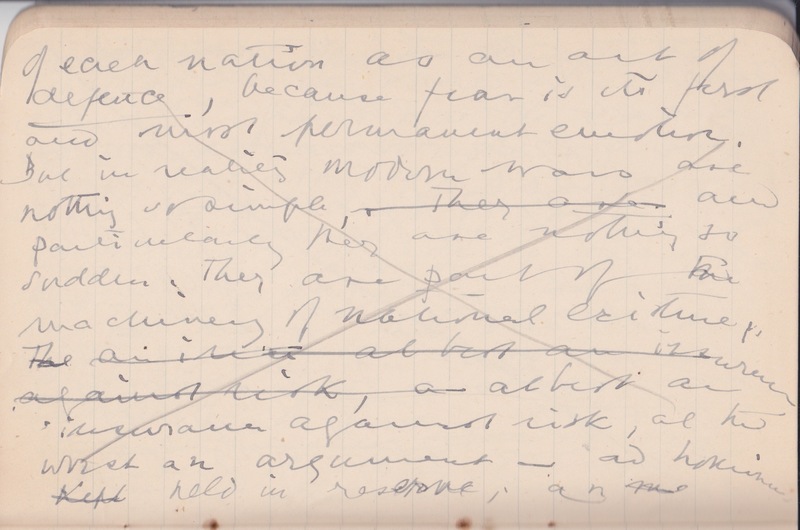 of each nation as an act of
defence, because fear is its first
and most permanent emotion.
But in reality modern wars are
nothing so simple, They are and
particularly they are nothing so
sudden. They are part of the
machinery of national existence,
The at best an insurance
against risk, a at best an
insurance against risk, at the
worst an argument — ad hominem
Kept held in reserve, an